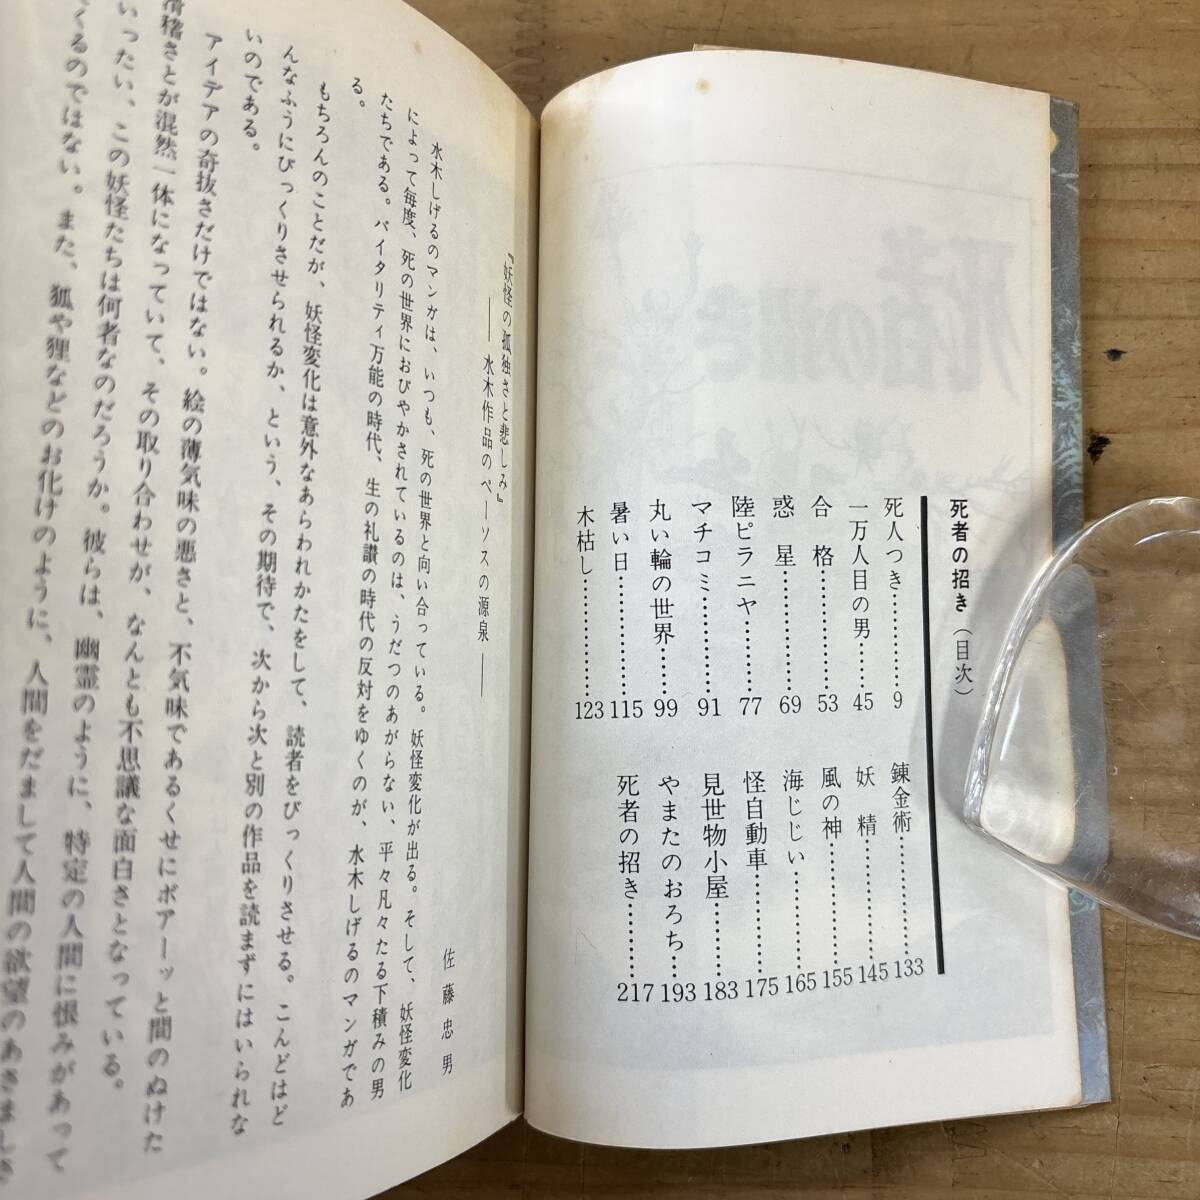 死者の招き(目次)
死人つき……………9
一万人目の男……45
合格……………53
惑星……………69
陸ピラニヤ………77
マチコミ…………91
丸い輪の世界……99
暑い日……………115
木枯し……………123
錬金術……………133
妖精……………145
風の神……………155
海じじい…………165
怪自動車…………175
見世物小屋………183
やまたのおろち…193
死者の招き………217
『妖怪の孤独さと悲しみ』
——水木作品のペーソスの源泉——
佐藤忠男
水木しげるのマンガは、いつも、死の世界と向い合っている。妖怪変化が出る。そして、妖怪変化
によって毎度、死の世界におびやかされているのは、うだつのあがらない、平々凡々たる下積みの男
たちである。バイタリティ万能の時代、生の礼讃の時代の反対をゆくのが、水木しげるのマンガであ
る。
もちろんのことだが、妖怪変化は意外なあらわれかたをして、読者をびっくりさせる。こんどはど
んなふうにびっくりさせられるか、という、その期待で、次から次と別の作品を読まずにはいられな
いのである。
アイデアの奇抜さだけではない。絵の薄気味の悪さと、不気味であるくせにボアーッと間のぬけた
滑稽さとが混然一体になっていて、その取り合わせが、なんとも不思議な面白さとなっている。
いったい、この妖怪たちは何者なのだろうか。彼らは、幽霊のように、特定の人間に恨みがあって
てくるのではない。また、狐や狸などのお化けのように、人間をだまして人間の欲望のあさましさ